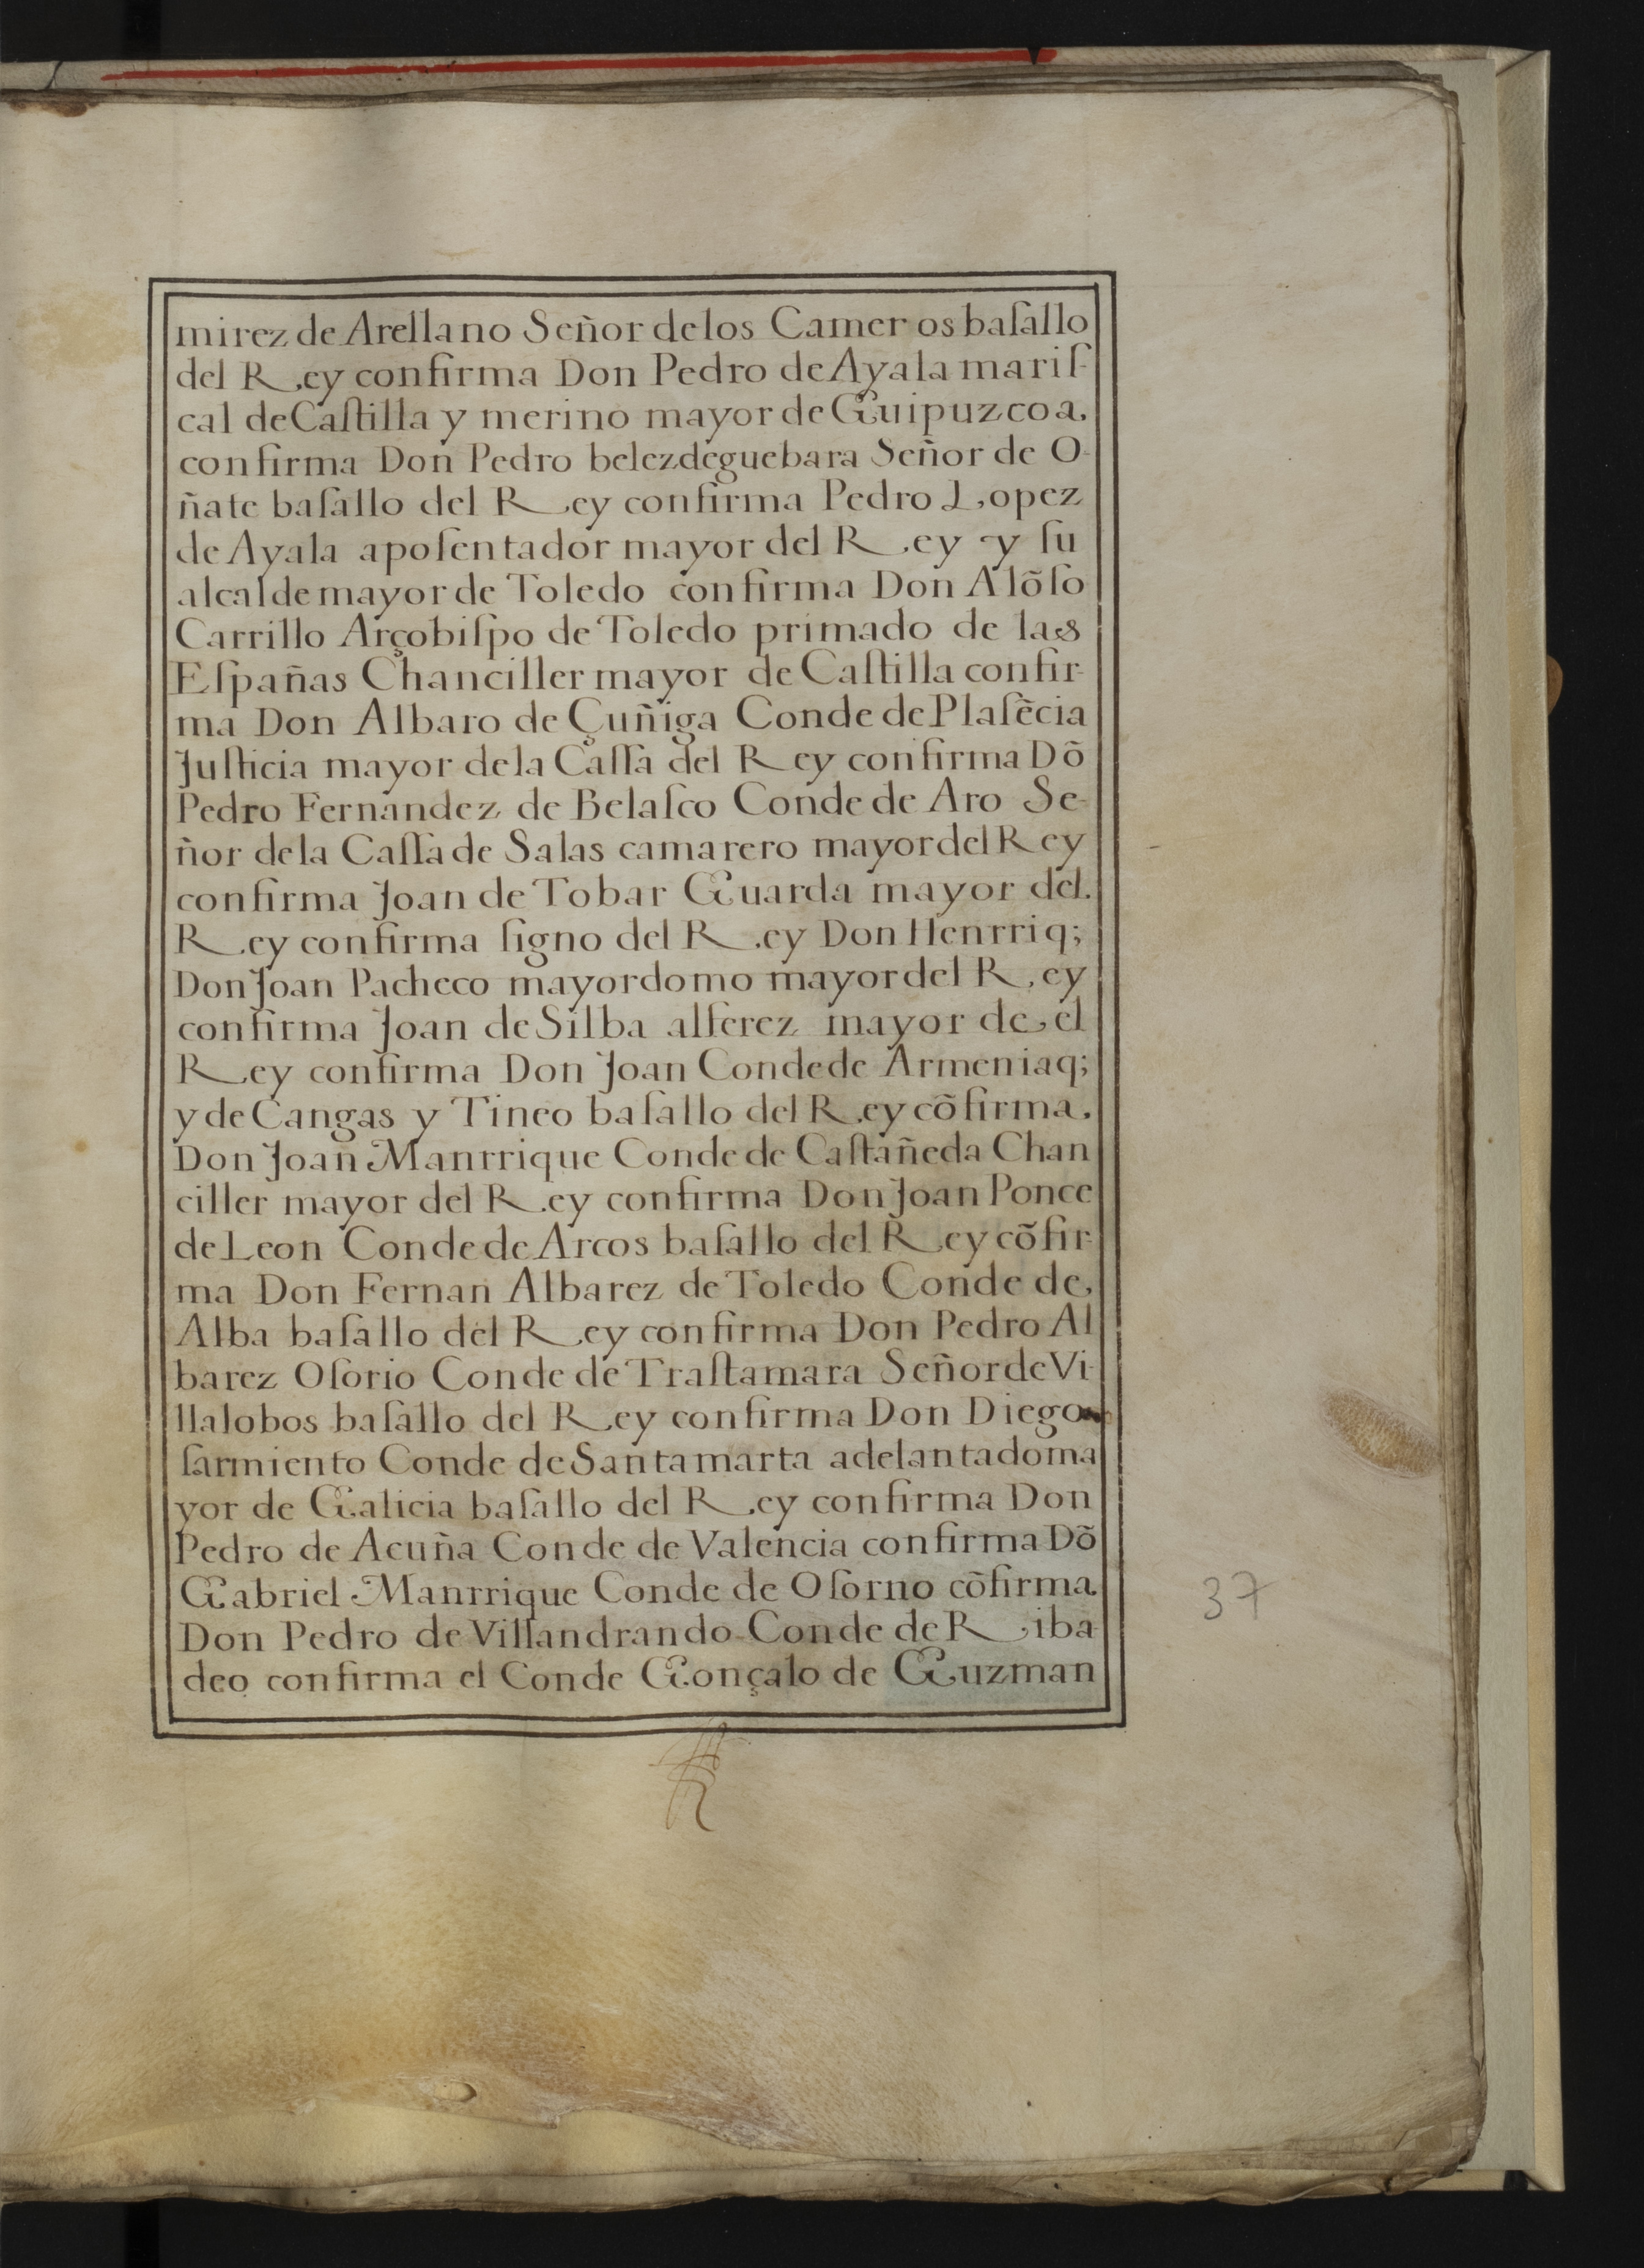 mirez de Arellano Señor de los Cameros baſallo
del Rey confirma Don Pedro de Ayala mariſ-
cal de Caſtilla y merino mayor de Guipuzcoa.
confirma Don Pedro belez de guebara Señor de O-
ñate baſallo del Rey confirma Pedro Lopez
de Ayala apoſentador mayor del Rey y ſu
alcalde mayor de Toledo confirma Don Alõſo
Carrillo Arçobiſpo de Toledo primado de las
Eſpañas Chanciller mayor de Caſtilla confir-
ma Don Albaro de Çuñiga Conde de Plaſẽcia
Juſticia mayor de la Caſſa del Rey confirma Dõ
Pedro Fernandez de Belaſco Conde de Aro Se-
ñor de la Caſſa de Salas camarero mayor del Rey
confirma Joan de Tobar Guarda mayor del.
Rey confirma ſigno del Rey Don Henrriq;
Don Joan Pacheco mayordomo mayor del Rey
confirma Joan de Silba alferez mayor de el
Rey confirma Don Joan Conde de Armeniaq;
y de Cangas y Tineo baſallo del Rey cõfirma.
Don Joan Manrrique Conde de Caſtañeda Chan
ciller mayor del Rey confirma Don Joan Ponce
de Leon Conde de Arcos baſallo del Rey cõfir-
ma Don Fernan Albarez de Toledo Conde de
Alba baſallo del Rey confirma Don Pedro Al
barez Oſorio Conde de Traſtamara Señor de Vi-
llalobos baſallo del Rey confirma Don Diego
ſarmiento Conde de Santa marta adelantado ma
yor de Galicia baſallo del Rey confirma Don
Pedro de Acuña Conde de Valencia confirma Dõ
Gabriel Manrrique Conde de Oſorno cõfirma
Don Pedro de Villandrando Conde de Riba
deo confirma el Conde Gonçalo de Guzman
37